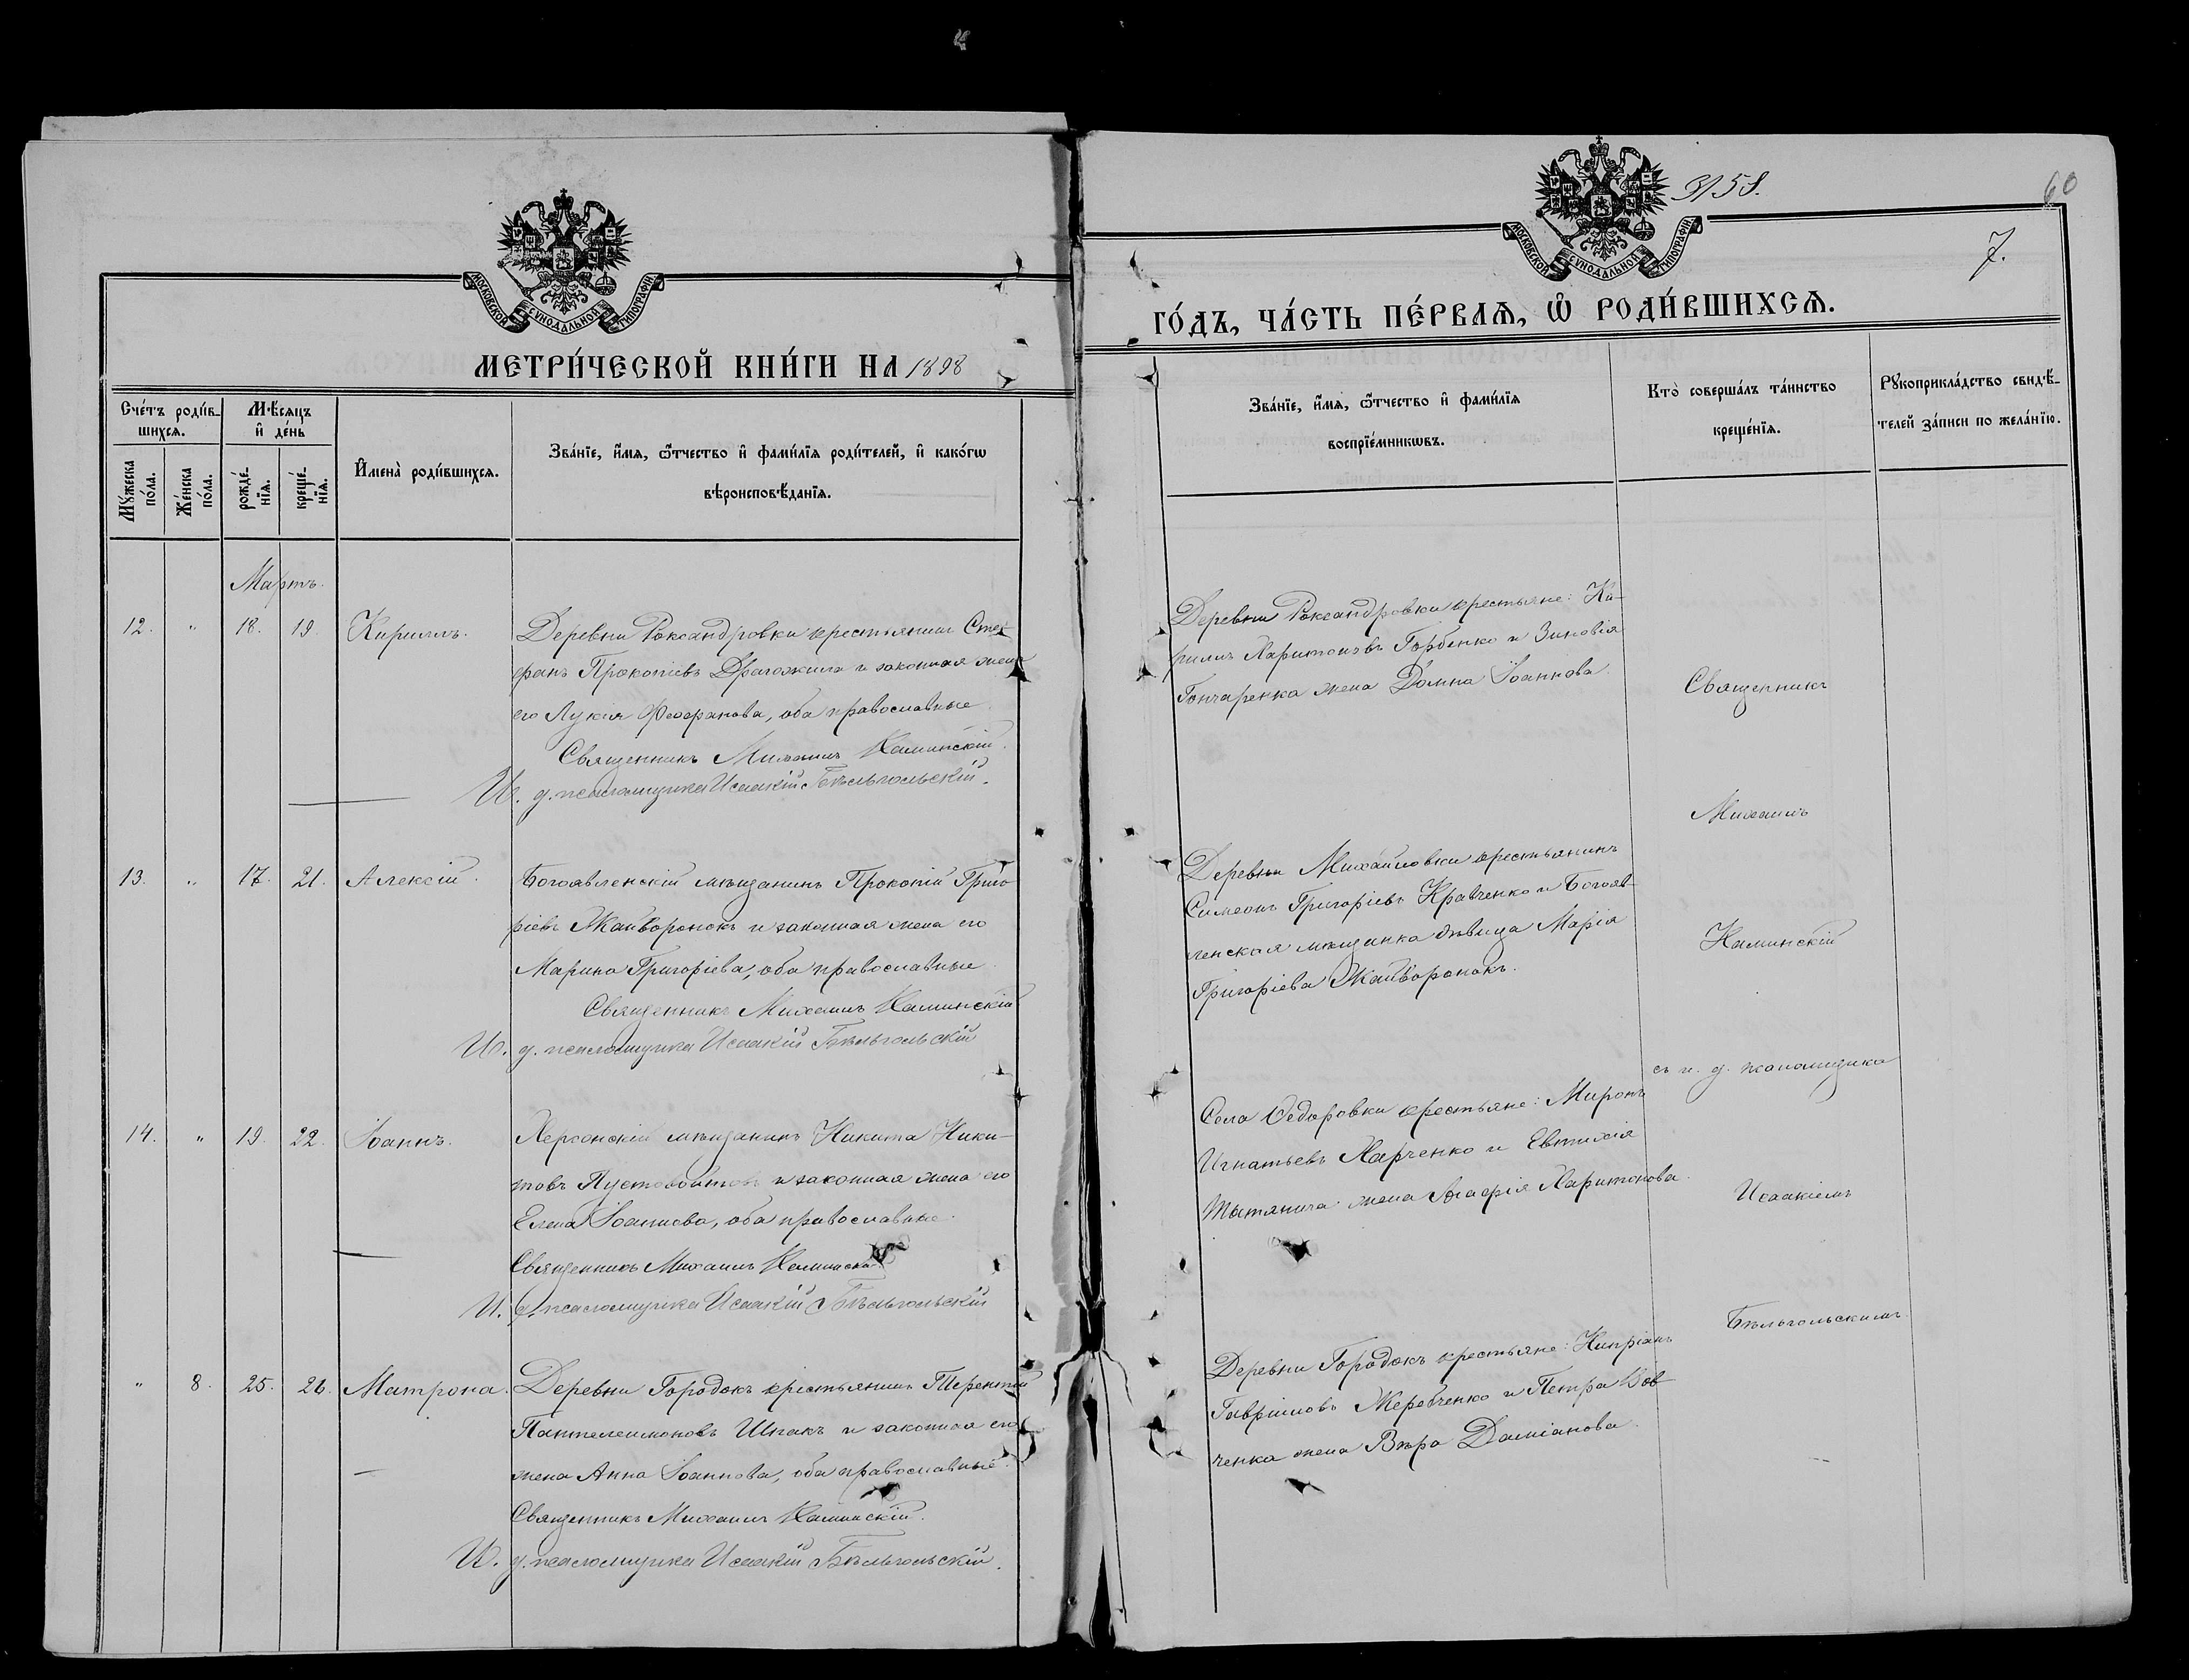 МОСКОВСКОЙ СѴНОДАЛЬНОЙ ТИПОГРАФІИ
МЕТРИ́ЧЕСКОЙ КНИ́ГИ НА 1898
Сче́тъ роди́в-
шихся.
Мѣ́сяцъ
и҆ де́нь
Мꙋ́жеска
по́ла.
Же́нска
по́ла.
рожде́-
нїя.
креще́-
нїя.
И҆мена̀ роди́вшихся.
Зва́нїе, и҆́мя, ѻ҆́тчество и҆ фами́лїя роди́телей, и҆ како́гѡ
вѣроисповѣ́данїя.
Мартъ.
12. " 18. 19. Кириллъ.
Деревни Роксандровки крестьянинъ Сте-
фанъ Прокопіевъ и законная жена
его Лукія Феофанова, оба православные.
Священникъ Михаилъ Каминскій.
И. д. псаломщика Исаакій Бѣльгольскій.
13. " 17. 21. Алексій.
Богоявленскій мѣщанинъ Прокопій Григо
ріевъ Жайворонокъ и законная жена его
Марина Григоріева, оба православные
Священникъ Михаилъ Каминскій
И. д. псаломщика Исаакій Бѣльгольскій
14. " 19. 22. Іоаннъ.
Херсонскій мѣщанинъ Никита Ники-
товъ Пустовойтовъ и законная жена его
Елена Іоаннова, оба православные.
Священникъ Михаилъ Каминскій
И. д. псаломщика Исаакій Бѣльгольскій
" 8. 25. 26. Матрона.
Деревни Городокъ крестьянинъ Терентій
Пантелеимоновъ Шпакъ и законная его
жена Анна Іоаннова, оба православные.
Священникъ Михаилъ Каминскій.
И. д. псаломщика Исаакій Бѣльгольскій.
358.
60
7.
МОСКОВСКОЙ СѴНОДАЛЬНОЙ ТИПОГРАФІИ
ГО́ДЪ, ЧА́СТЬ ПЕ́РВАЯ, Ѡ҆ РОДИ́ВШИХСЯ.
Зва́нїе, и҆́мя, ѻ҆́тчество и҆ фами́лїя
воспрїе́мникѡвъ.
Кто̀ соверша́лъ та́инство
креще́нїя.
Рꙋкоприкла́дство свидѣ́-
телей за́писи по жела́нїю.
Деревни Роксандровки крестьяне: Ки-
риллъ Харитоновъ Горбенко и Зиновія
Гончаренка жена Домна Іоаннова.
Священникъ
Михаилъ
Деревни Михайловки крестьянинъ
Симеонъ Григоріевъ Кравченко и Богояв-
ленская мѣщанка дѣвица Марія
Григоріева Жайворонокъ.
Каминскій
съ и. д. псаломщика
Села Ѳедоровки крестьяне: Миронъ
Игнатьевъ Харченко и Евтихія
жена Агафія Харитонова.
Исаакіемъ
Бѣльгольскимъ.
Деревни Городокъ крестьяне: Кипріанъ
Гавріиловъ Жеребченко и Петра Вов-
ченка жена Вѣра Даміанова.